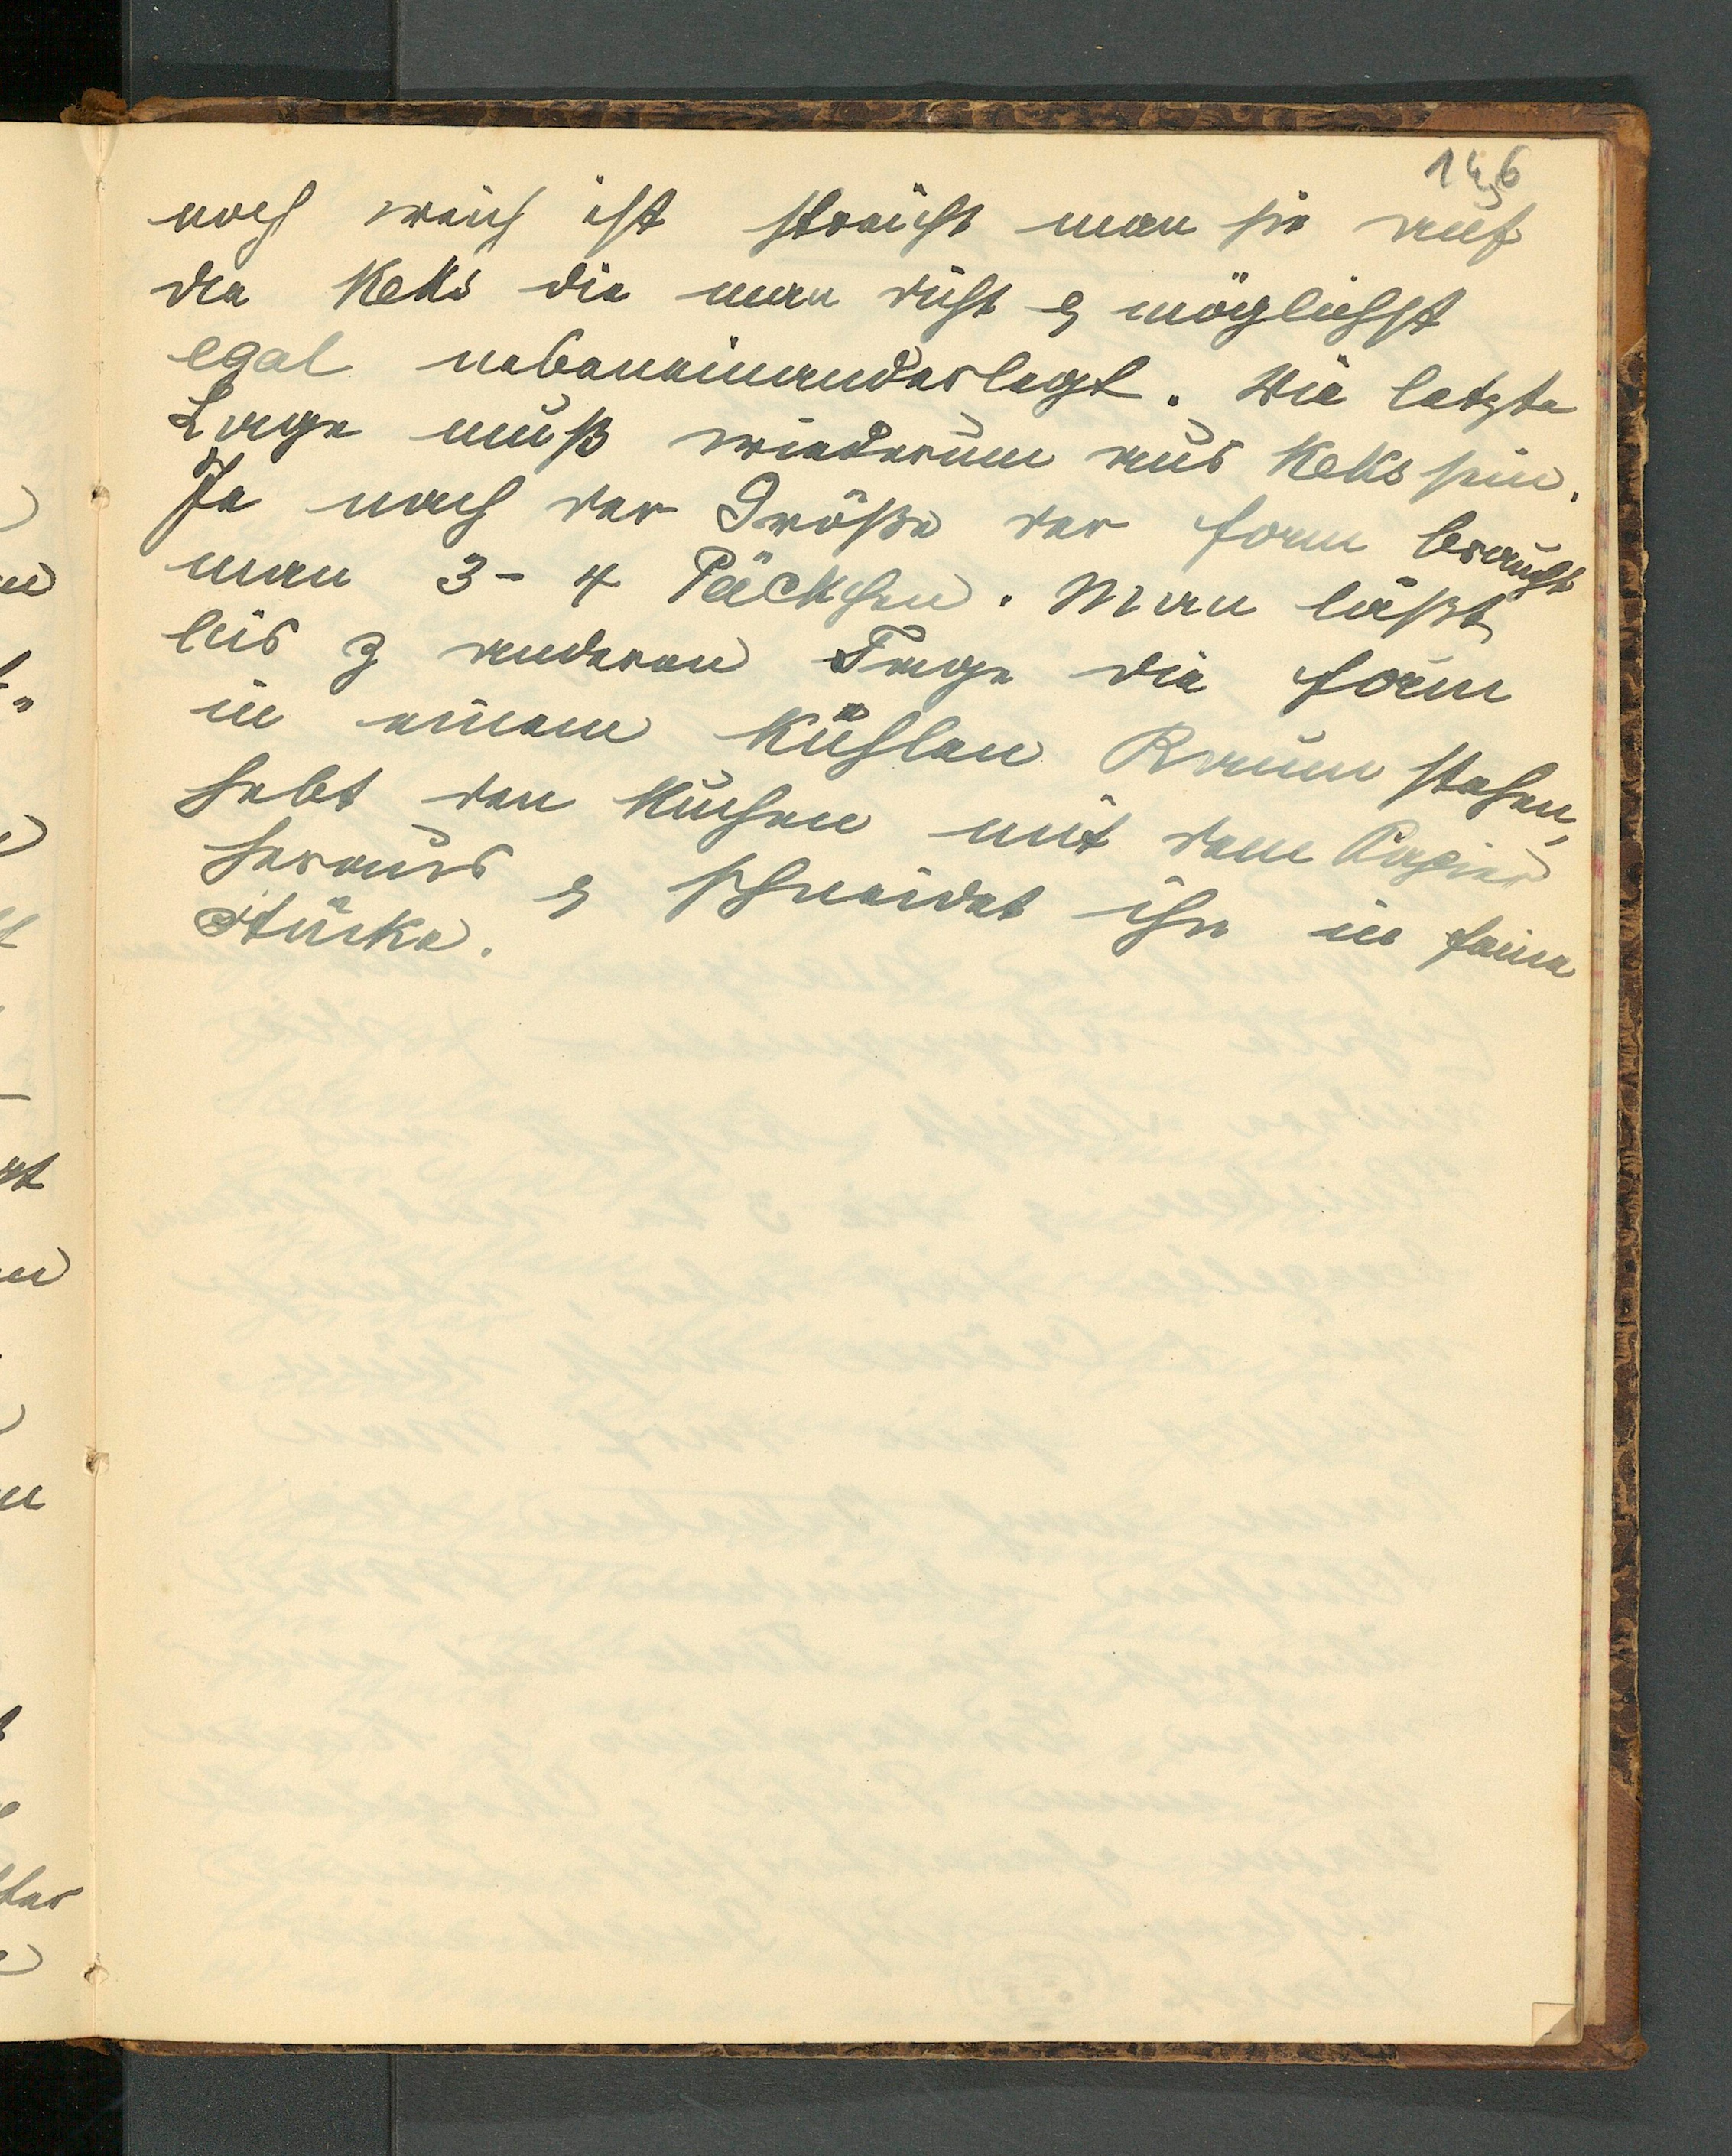 146
noch weich ist streicht man sie auf
die Keks die man dicht & möglichst
egal nebeneinanderlegt. Die letzte
Lage muß wiederum aus Keks sein.
Je nach der Größe der Form braucht
man 3-4 Päckchen. Man läßt
bis z anderen Tage die Form
in einem kühlen Raum stehen,
hebt den Kuchen mit dem Papier
heraus & schneidet ihn in feine
Stücke.